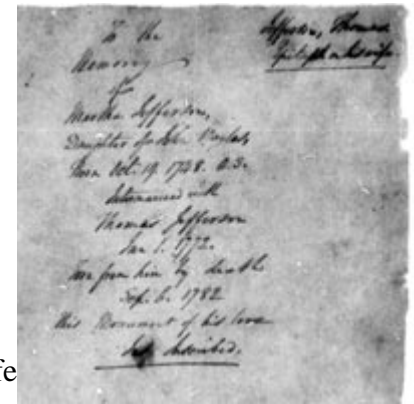 Jefferson, Thomas
Epitaph on his wife.
To the
Memory
of
Martha Jefferson,
Daughter of John Wayles,
Born Oct. 19, 1748. O.S.
Intermarried with
Thomas Jefferson
Jan. 1. 1772.
Torn from him by death
Sep. 6. 1782
this Monument of his love
is inscribed.
fe